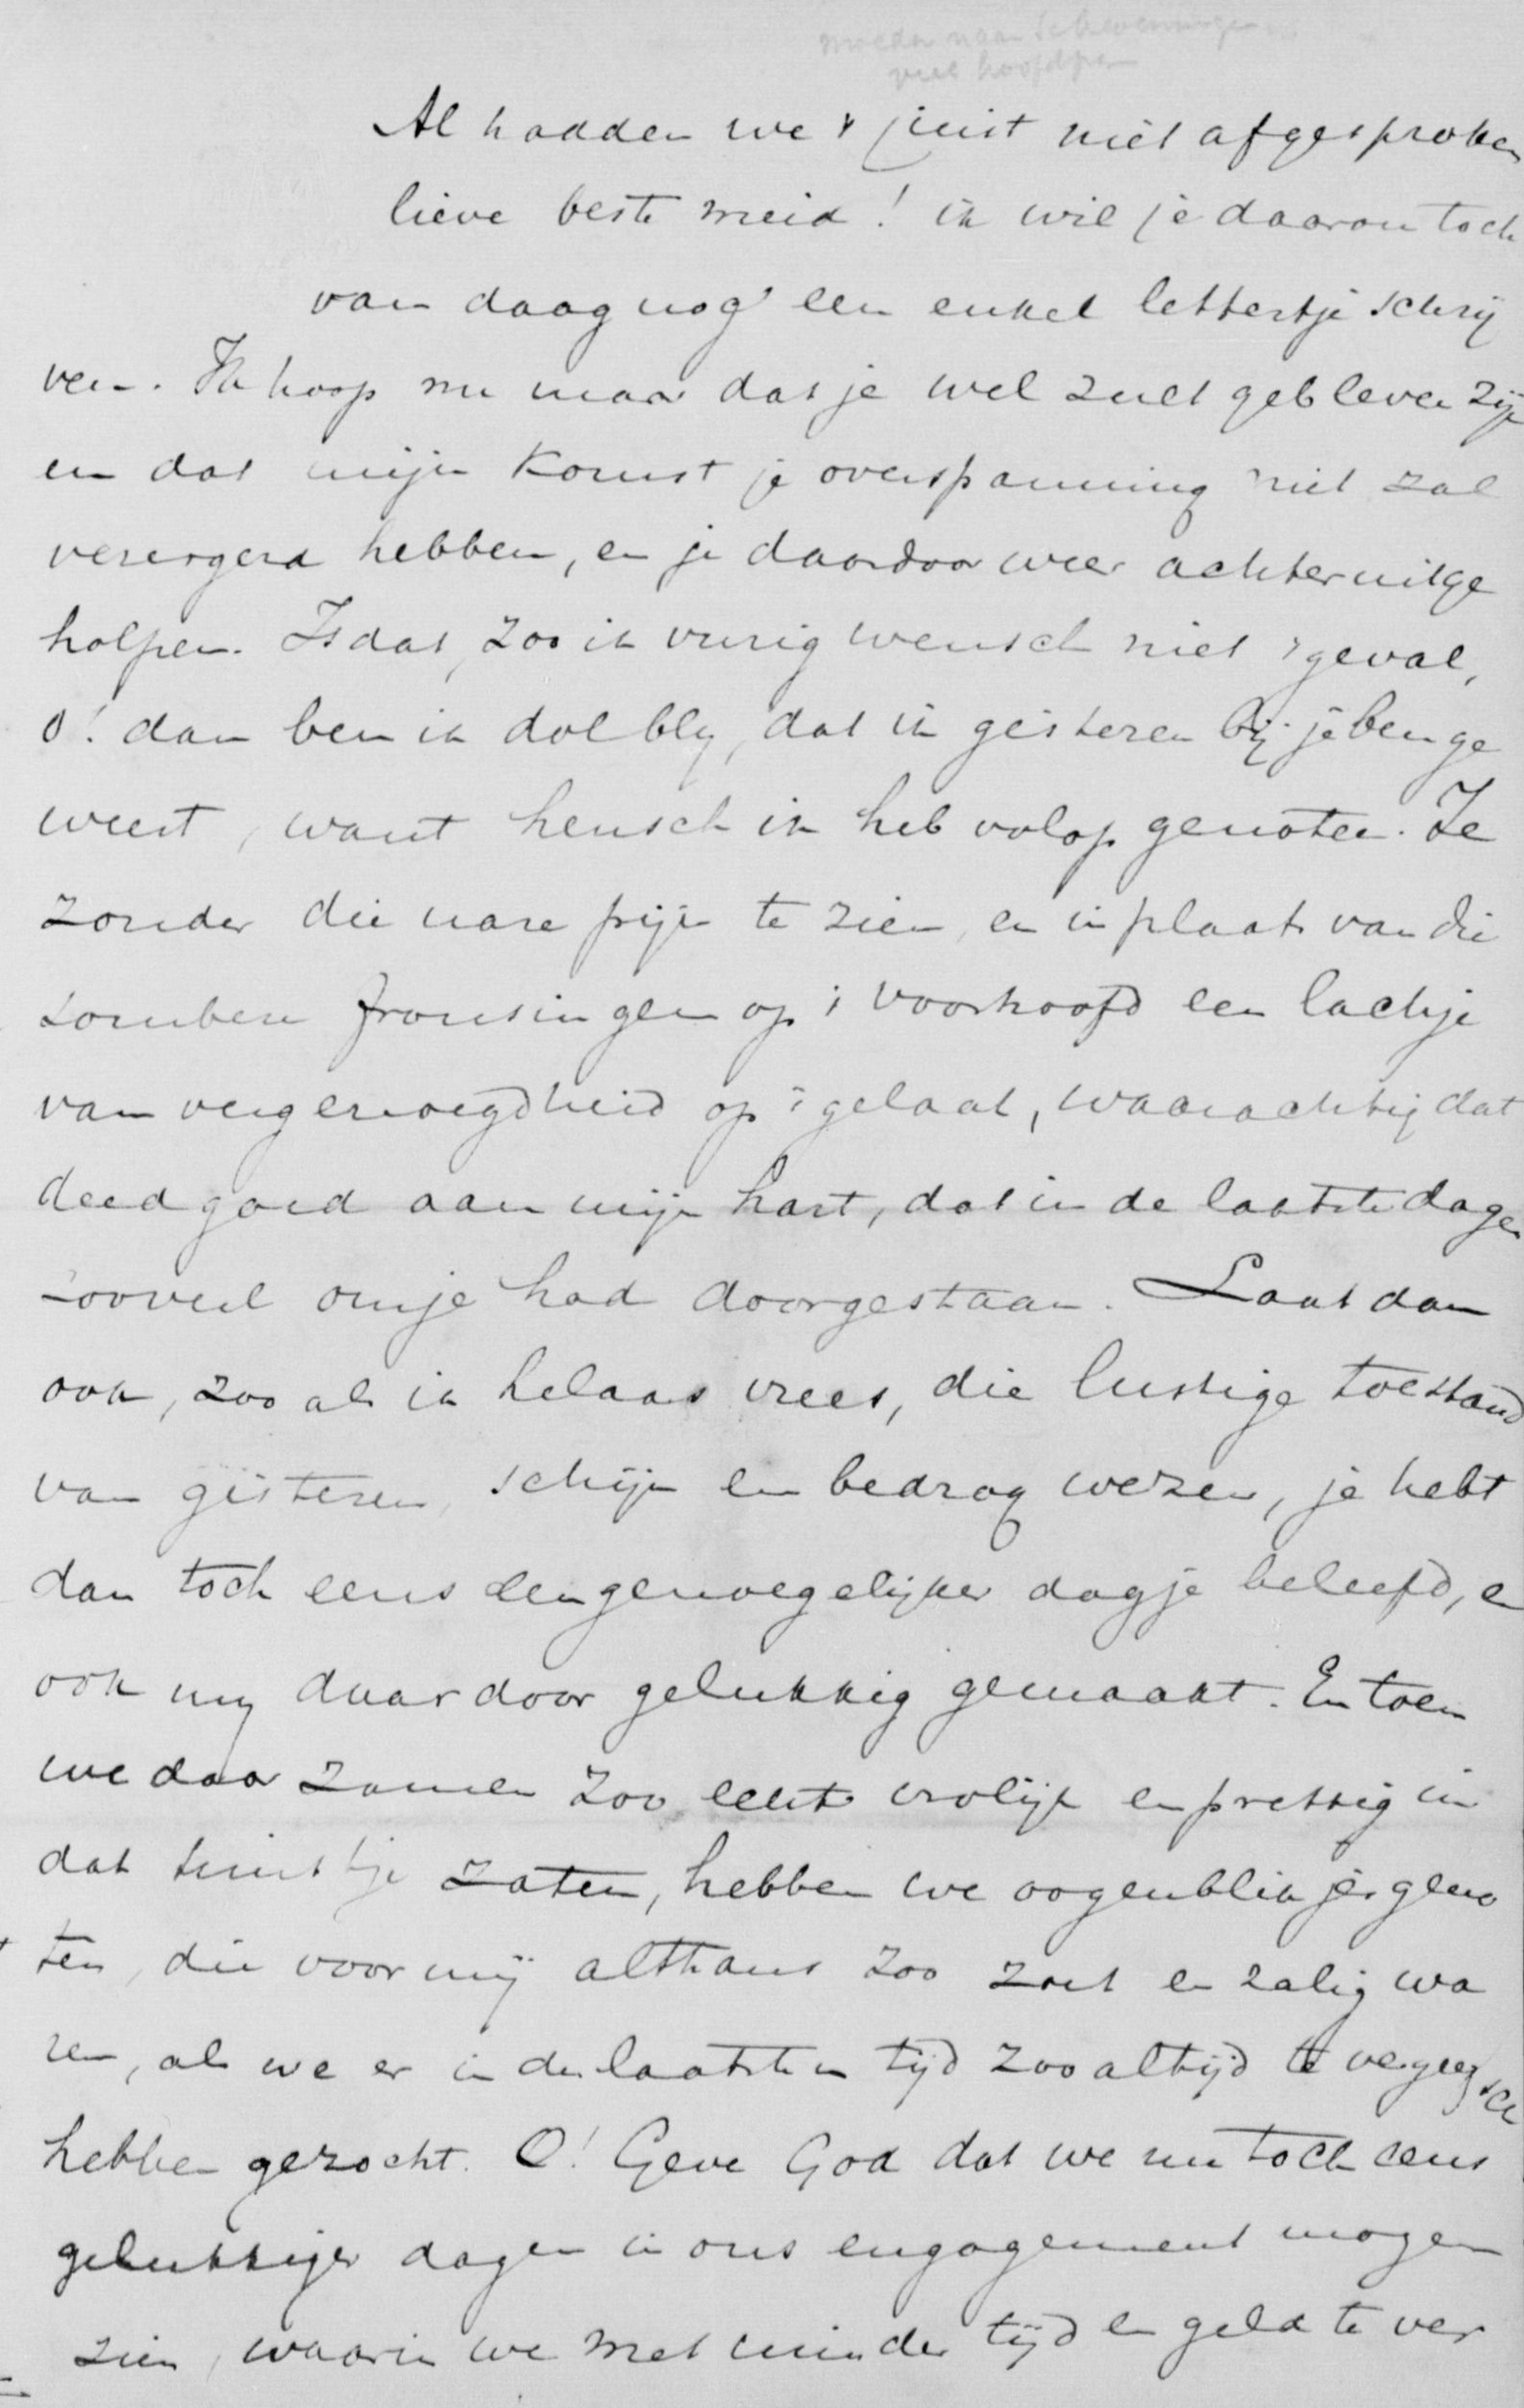 moeder naar Scheveningen
veel hoofdpijn
Al hadden we 't juist niet afgesproken
lieve beste meid! ik wil je daarom toch
van daag nog een enkel lettertje schrij
ven. Ik hoop nu maar dat je wel zult gebleven zijn
en dat mijn komst je overspanning niet zal
verergerd hebben, en je daardoor weer achteruitge
holpen. Is dat, zoo ik vurig wensch niet 't geval,
o! dan ben ik dolbly, dat ik gisteren bij je ben ge
weest, want heusch ik heb volop genoten. Je
zonder die nare pijn te zien, en in plaats van die
sombere fronsingen op 't voorhoofd een lachje
van vergenoegdheid op 't gelaat, waarachtig dat
deed goed aan mijn hart, dat in de laatste dagen
zooveel om je had doorgestaan. Laat dan
ook, zoo als ik helaas vrees, die lustige toestand
van gisteren, schijn en bedrog wezen, je hebt
dan toch eens een genoegelijker dagje beleefd, en
ook my daardoor gelukkig gemaakt. En toen
we daar zamen zoo echt vrolijk en prettig in
dat tuintje zaten, hebben we oogenblikjes geno
ten, die voor mij althans zoo zoet en zalig wa
ren, als we er in den laatsten tijd zoo altijd te vergeefsch
hebben gezocht. O! Geve God dat we nu toch eens
gelukkiger dagen in ons engagement mogen
zien, waarin we met minder tijd en geld te ver